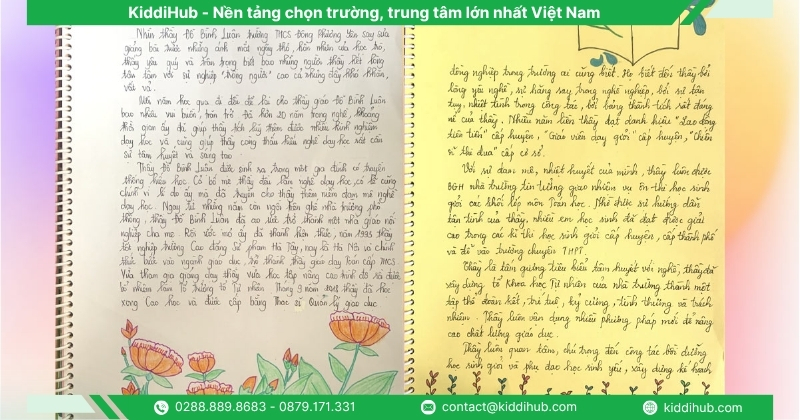 KiddiHub - Nền tảng chọn trường, trung tâm lớn nhất Việt Nam
Nhìn thầy Đỗ Bình Luân trường THCS Đông Phương Yên say sưa
giảng bài trước những ánh mắt ngây thơ, hồn nhiên của học trò,
thấy yêu quý và trân trọng biết bao những người thầy hết lòng
tận tâm với sự nghiệp "trồng người" cao cả nhưng đầy khó khăn,
vất vả.
Mỗi năm học qua đi đều để lại cho thầy giáo Đỗ Bình Luân
bao nhiêu vui buồn, trăn trở. Đã hơn 20 năm trong nghề, khoảng
thời gian ấy đủ giúp thầy tích luỹ thêm được nhiều kinh nghiệm
dạy học và cũng giúp thầy càng thấu hiểu nghề dạy học rất cần
sự tâm huyết và sáng tạo.
Thầy Đỗ Bình Luân được sinh ra trong một gia đình có truyền
thống hiếu học. Có bố mẹ thầy đều làm nghề dạy học, có lẽ cũng
chính vì lí do ấy mà đã truyền cho thầy thêm niềm đam mê nghề
dạy học. Ngay từ những năm còn ngồi trên ghế nhà trường phổ
thông, thầy Đỗ Bình Luân đã ao ước trở thành một nhà giáo nối
nghiệp cha mẹ. Rồi ước mơ ấy đã thành hiện thực, năm 1995 thầy
tốt nghiệp trường Cao đẳng Sư phạm Hà Tây, nay là Hà Nội và chính
thức bước vào ngành giáo dục, trở thành thầy giáo dạy Toán cấp THCS.
Vừa tham gia giảng dạy thầy vừa học tập nâng cao trình độ và được
bổ nhiệm làm Tổ trưởng tổ Tự nhiên. Tháng 9 năm 2018 thầy đã học
xong Cao học và được cấp bằng Thạc sĩ Quản lý giáo dục.
đồng nghiệp trong trường ai cũng biết. Họ biết đến thầy bởi
lòng yêu nghề, sự hăng say trong nghề nghiệp, bởi sự tận
tụy, nhiệt tình trong công tác, bởi bảng thành tích rất đáng
nể của thầy. Nhiều năm liền thầy đạt danh hiệu "Lao động
tiên tiến" cấp huyện, "Giáo viên dạy giỏi" cấp huyện, "Chiến
sĩ thi đua" cấp cơ sở.
Với sự đam mê, nhiệt huyết của mình, thầy luôn được
BGH nhà trường tin tưởng giao nhiệm vụ ôn thi học sinh
giỏi các khối lớp môn Toán học. Nhờ được sự hướng dẫn
tận tình của thầy, nhiều em học sinh đã đạt được giải
cao trong các kì thi học sinh giỏi cấp huyện, cấp thành phố
và đỗ vào trường chuyên THPT.
Thầy là tấm gương tiêu biểu tâm huyết với nghề, thầy đã
xây dựng tổ Khoa học Tự nhiên của nhà trường thành một
tập thể đoàn kết, trí tuệ, kỷ cương, tình thương và trách
nhiệm. Thầy luôn vận dụng nhiều phương pháp mới để nâng
cao chất lượng giáo dục.
Thầy luôn quan tâm, chú trọng đến công tác bồi dưỡng
học sinh giỏi và phụ đạo học sinh yếu, xây dựng kế hoạch
0288.889.8683 - 0879.171.331
contact@kiddihub.com
kiddihub.com